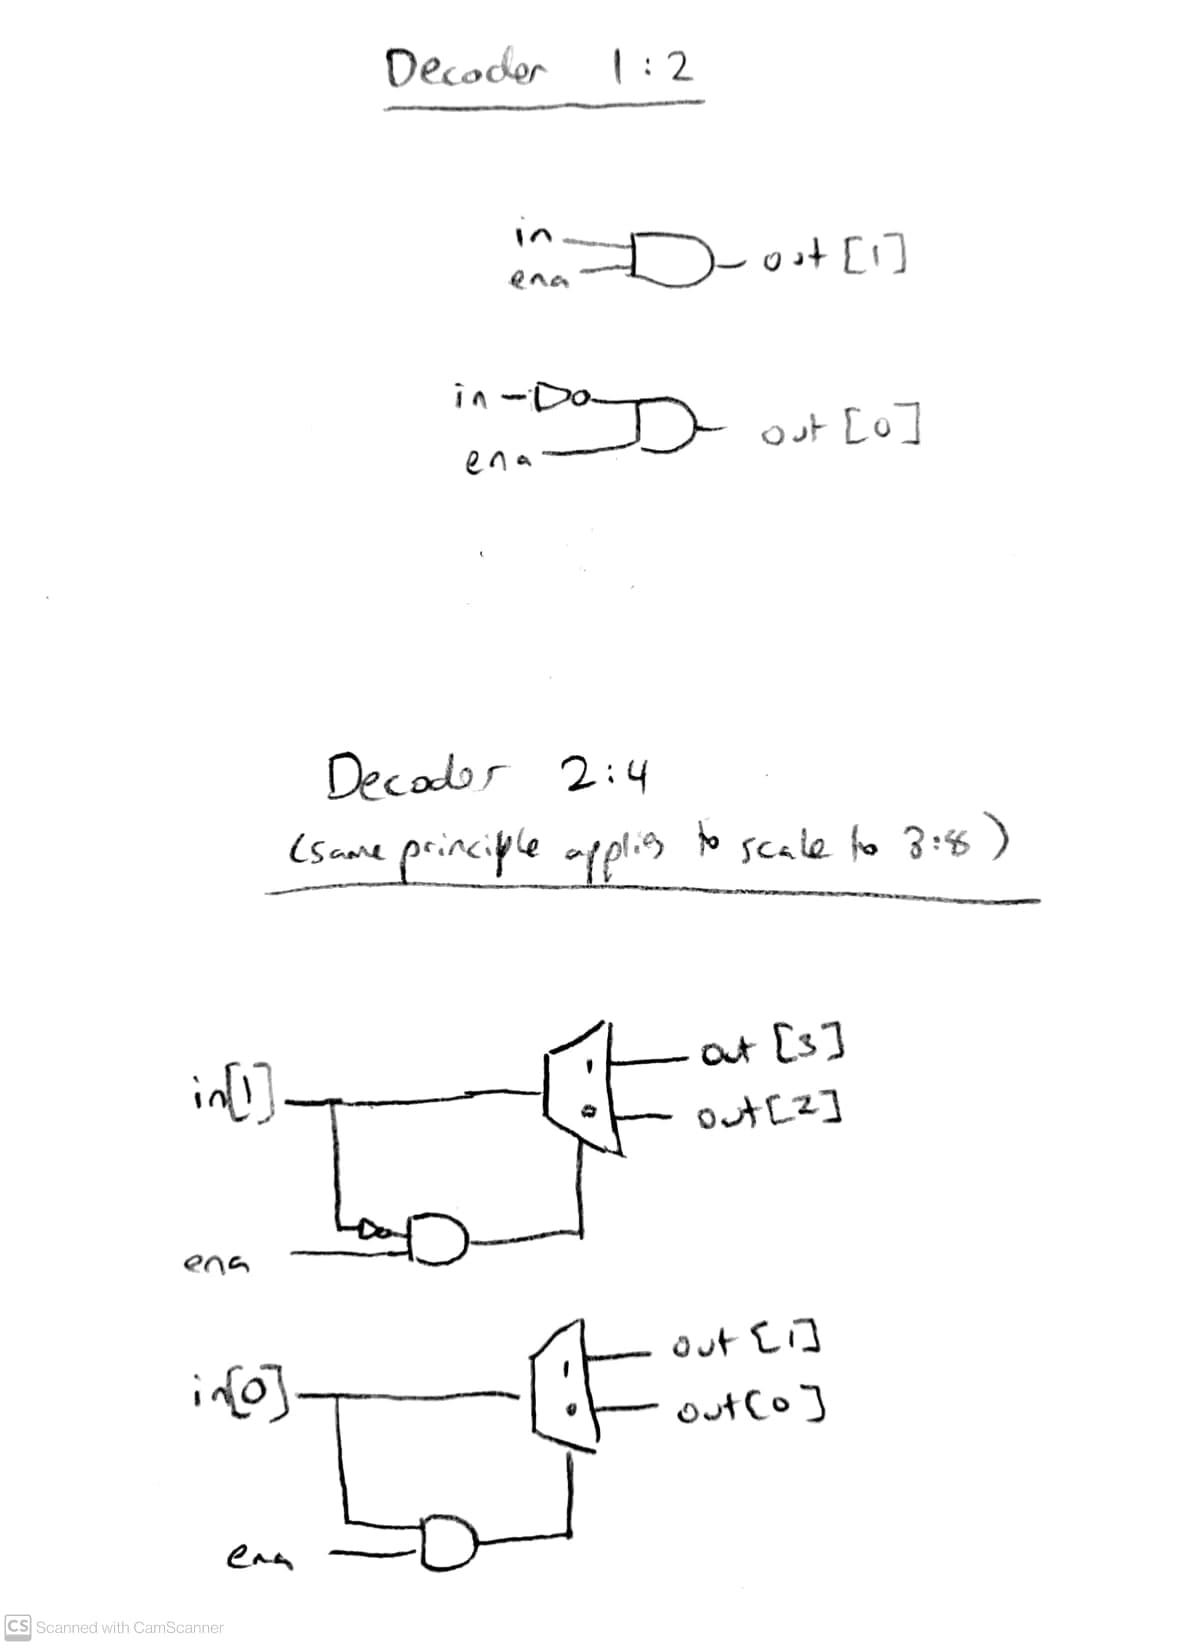 Decoder 1:2
in
ena
out [1]
in
ena
out [0]
Decoder 2:4
(same principle applies to scale to 3:8)
in[1]
1
0
out [3]
out [2]
ena
in[0]
1
0
out [1]
out [0]
ena
CS Scanned with CamScanner